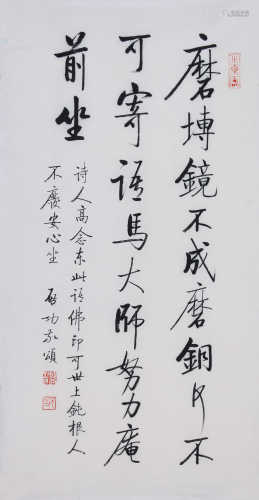 磨塼鏡不成磨銅片不
可寄语馬大師努力庵
前坐
诗人高念东此语佛印可世上鈍根人
不廢安心坐 启功敬頌